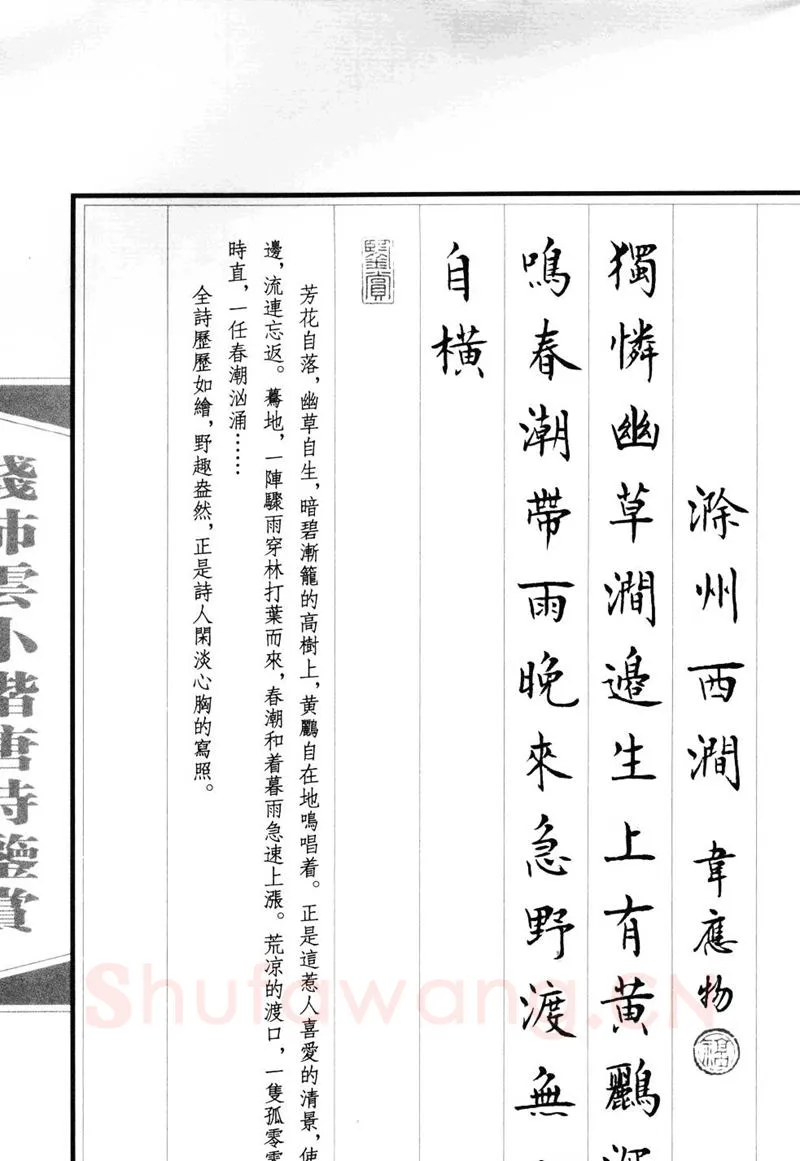 滁州西澗 韋應物
獨憐幽草澗邊生上有黃鸝深
鳴春潮帶雨晚來急野渡無
自橫
鑒賞
芳花自落，幽草自生，暗碧漸籠的高樹上，黃鸝自在地鳴唱着。正是這惹人喜愛的清景，使
邊，流連忘返。驀地，一陣驟雨穿林打葉而來，春潮和着暮雨急速上漲。荒凉的渡口，一隻孤零零
時直，一任春潮汹涌……
全詩歷歷如繪，野趣盎然，正是詩人閑淡心胸的寫照。
錢沛雲小楷唐詩鑒賞
Shufawang.CN